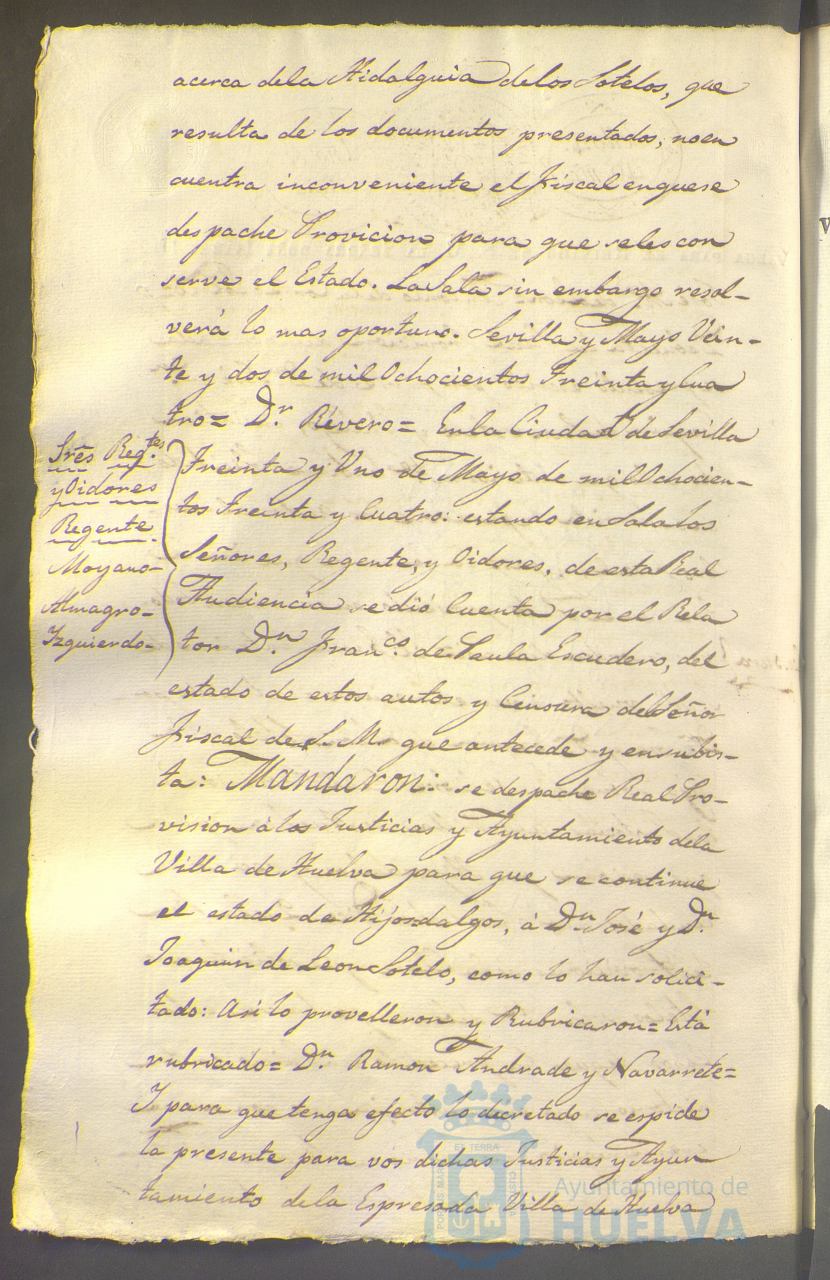 acerca dela Hidalguia delos Sotelos, que
resulta de los documentos presentados, noen
cuentra inconveniente el Fiscal enquese
despache Provicion para que selescon
serve el Estado. LaSala sin embargo resol-
verá lo mas oportuno. Sevilla y Mayo Vein-
te y dos de mil Ochocientos Treinta y Cua
tro= Dr. Rivero= Enla Ciudad de Sevilla
Sres Regtes
y Oidores
Regente
Moyano-
Almagro-
Izquierdo-
Treinta y Uno de Mayo de mil Ochocien-
tos Treinta y Cuatro: estando enSala los
Señores, Regente, y Oidores, de esta Real
Audiencia se dió Cuenta por el Rela
tor Dn. Franco. de Paula Escudero, del
estado de estos autos y Censura delSeñor
Fiscal de S. M. que antecede y en subis-
ta: Mandaron: se despache Real Pro-
vision álos Justicias y Ayuntamiento dela
Villa de Huelva para que se continue
el estado de Hijosdalgos, á Dn. José y Dn.
Joaquin de Leon Sotelo, como lo han solici-
tado: Asi lo provelleron y Rubricaron= Está
rubricado= Dn. Ramon Andrade y Navarrete=
Y para que tenga efecto lo decretado se espide
la presente para vos dichas Justicias y Ayun
tamiento dela Espresada Villa de Huelva
Ayuntamiento de
HUELVA